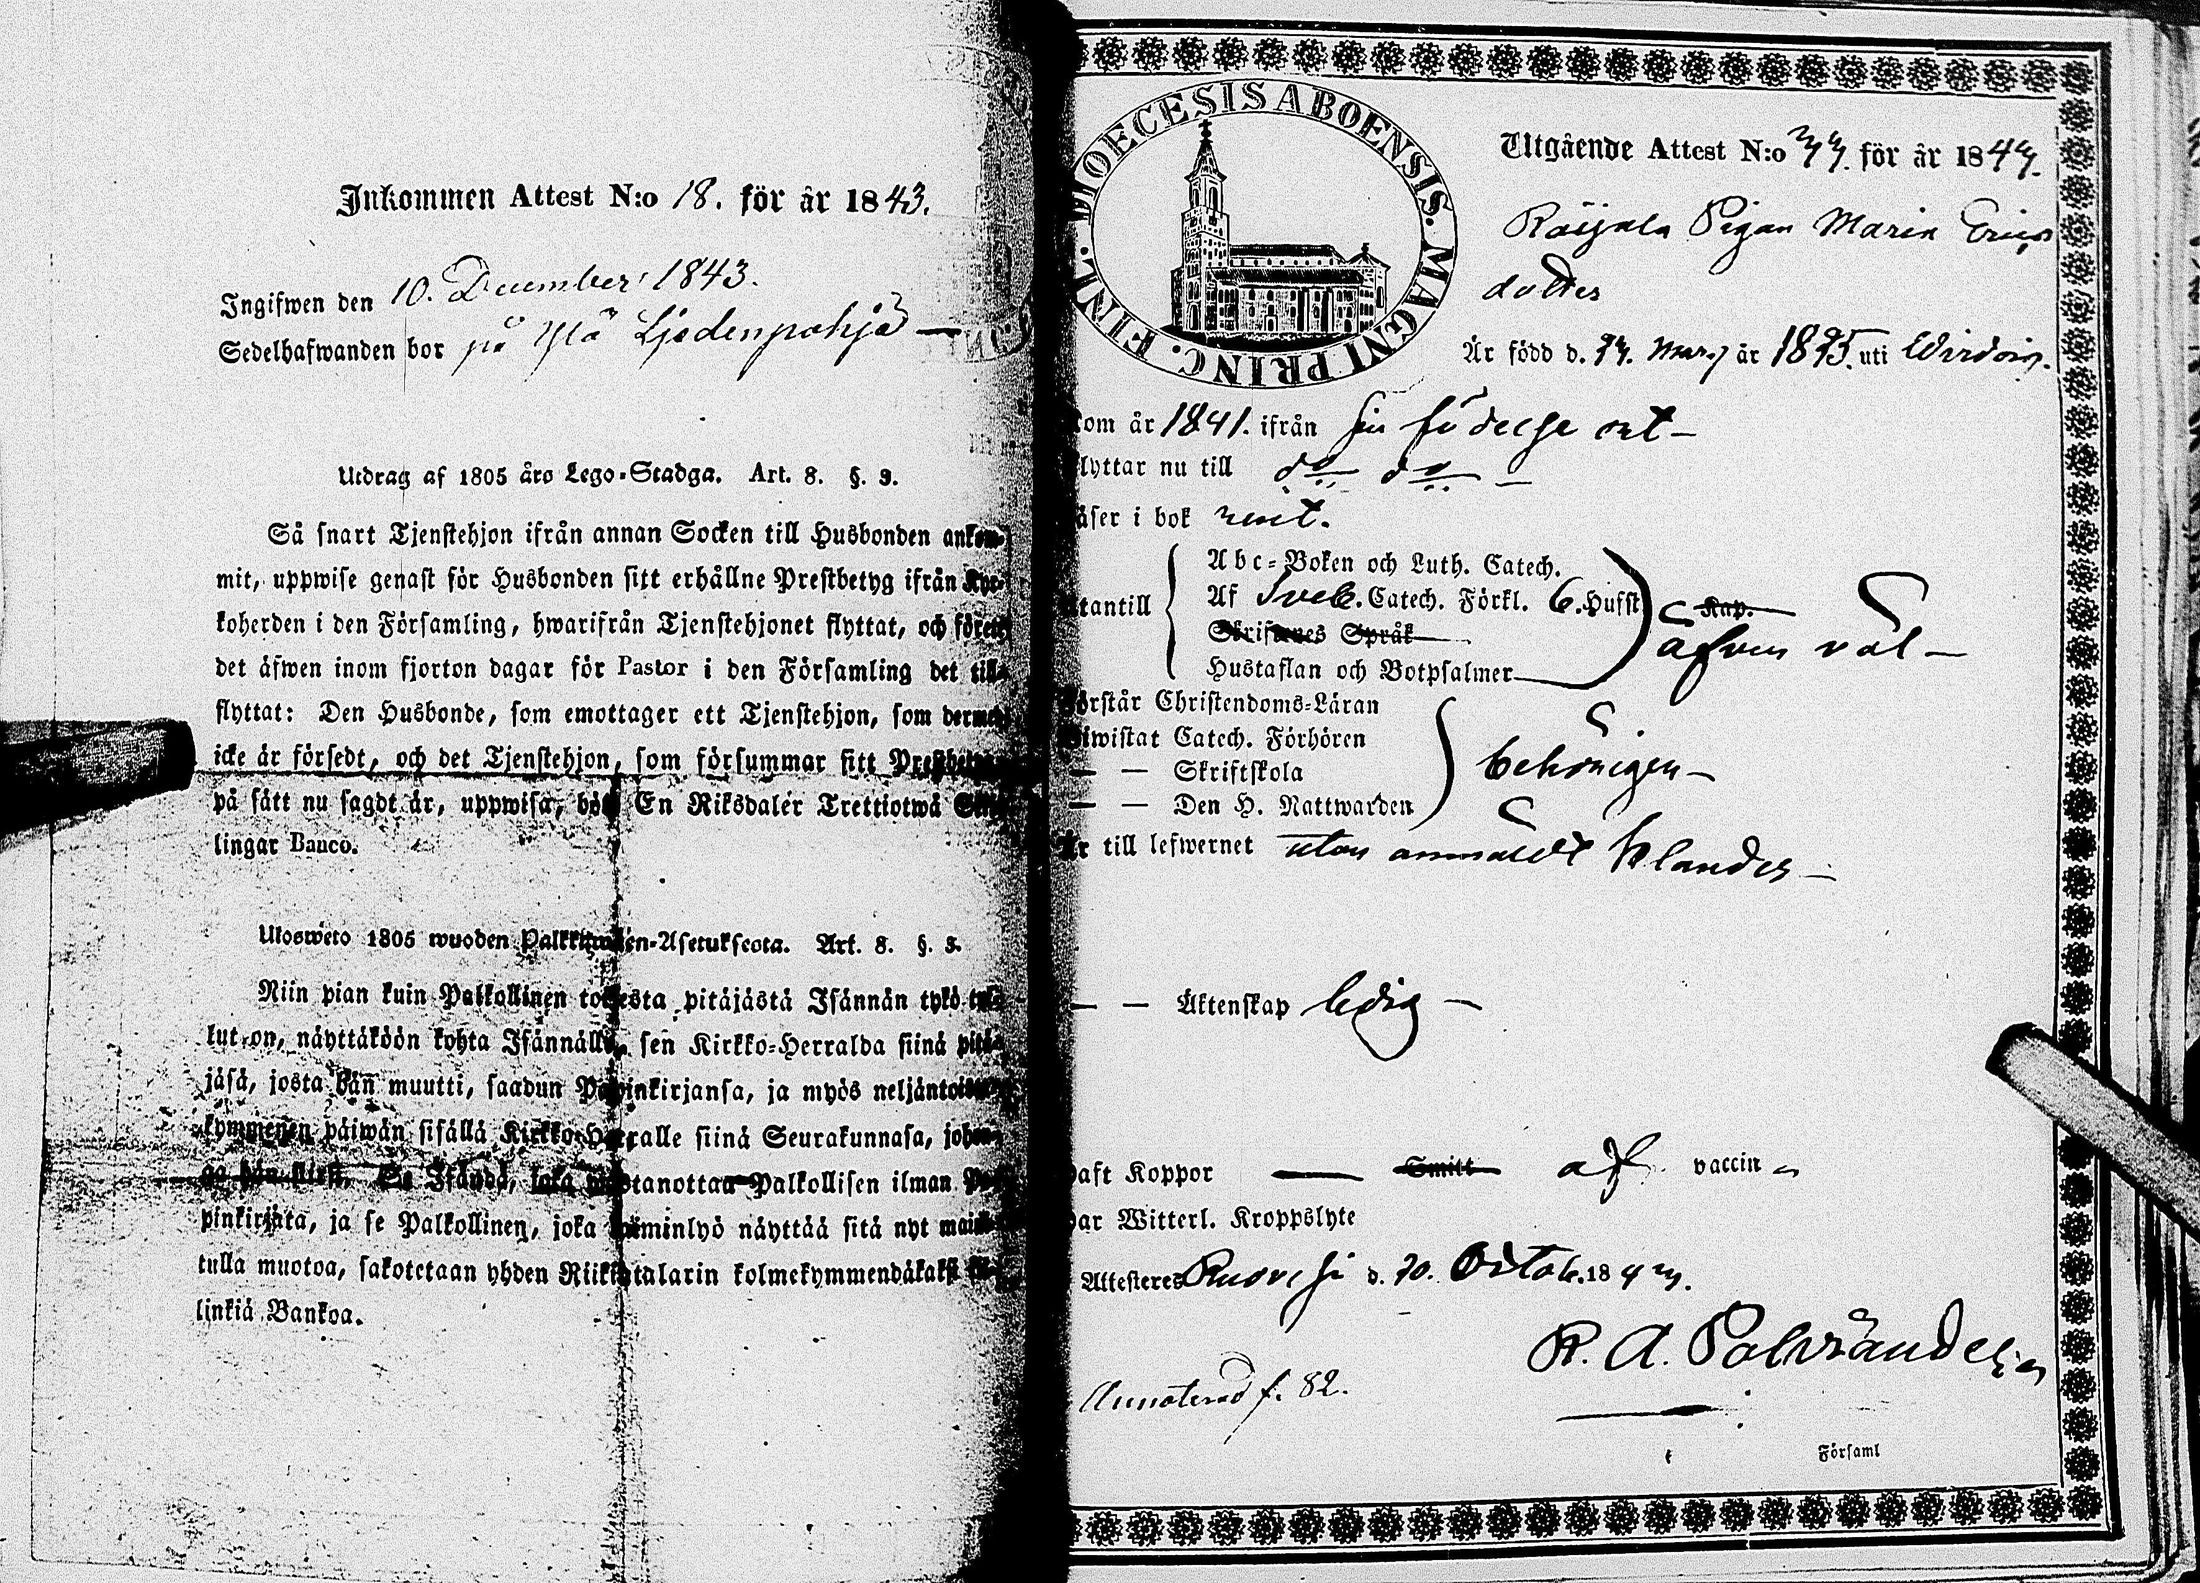 Inkommen Attest N:o 18. för år 1843.
Ingifwen den 10. December 1843.
Sedelhafwanden bor på Ylä Ljedenpohja —
Utdrag af 1805 års Lego-Stadga. Art. 8. §. 3.
Så snart Tjenstehjon ifrån annan Socken till Husbonden ankom-
mit, uppwise genast för Husbonden sitt erhållne Prestbetyg ifrån Kyr-
koherden i den Församling, hwarifrån Tjenstehjonet flyttat, och förete
det äfwen inom fjorton dagar för Pastor i den Församling det till-
flyttat: Den Husbonde, som emottager ett Tjenstehjon, som dermed
icke är försedt, och det Tjenstehjon, som försummar sitt Prestbetyg
på sätt nu sagdt är, uppwisa, böte En Riksdaler Trettiotwå Skil-
lingar Banco.
Ulosweto 1805 wuoden Palkkuwäen-Asetuksesta. Art. 8. §. 3.
Niin pian kuin Palkollinen toisesta pitäjästä Isännän tykö tul-
lut on, näyttäköön kohta Isännälle, sen Kirkko-Herralda siinä pitä-
jäsä, josta hän muutti, saadun Papinkirjansa, ja myös neljäntoista-
kymmenen päiwän sisällä Kirkko-Herralle siinä Seurakunnasa, johon-
ga hän siirsi. Se Isändä, joka wastanottaa Palkollisen ilman Pa-
pinkirjata, ja se Palkollinen, joka laiminlyö näyttää sitä nyt mainit-
tulla muotoa, sakotetaan yhden Riikintalarin kolmekymmendäkaksi kil-
linkiä Bankoa.
FINL. DIOECESIS ABOENSIS. MAGNI PRINC.
Utgående Attest N:o för år 184
Pigan Maria Erics
dotter
Är född d. Mars år 18 uti Wirdois.
Kom år 1841. ifrån sin födelse ort —
Flyttar nu till do do —
Läser i bok rent.
Abc-Boken och Luth. Catech.
Utantill Af Sveb. Catech. Förkl. 6. Hufst. Kap.
Skriftenes Språk äfven väl —
Hustaflan och Botpsalmer
Förstår Christendoms-Läran
Biwistat Catech. Förhören
— — Skriftskola behörigen —
— — Den H. Nattwarden
Är till lefwernet utan anmäldt klander —
— — Äktenskap ledig —
Haft Koppor — Smitt af vaccin
Har Witterl. Kroppslyte
Attesteres Ruovesi d. Octob. 184
Annoterad f. 82.
Församl